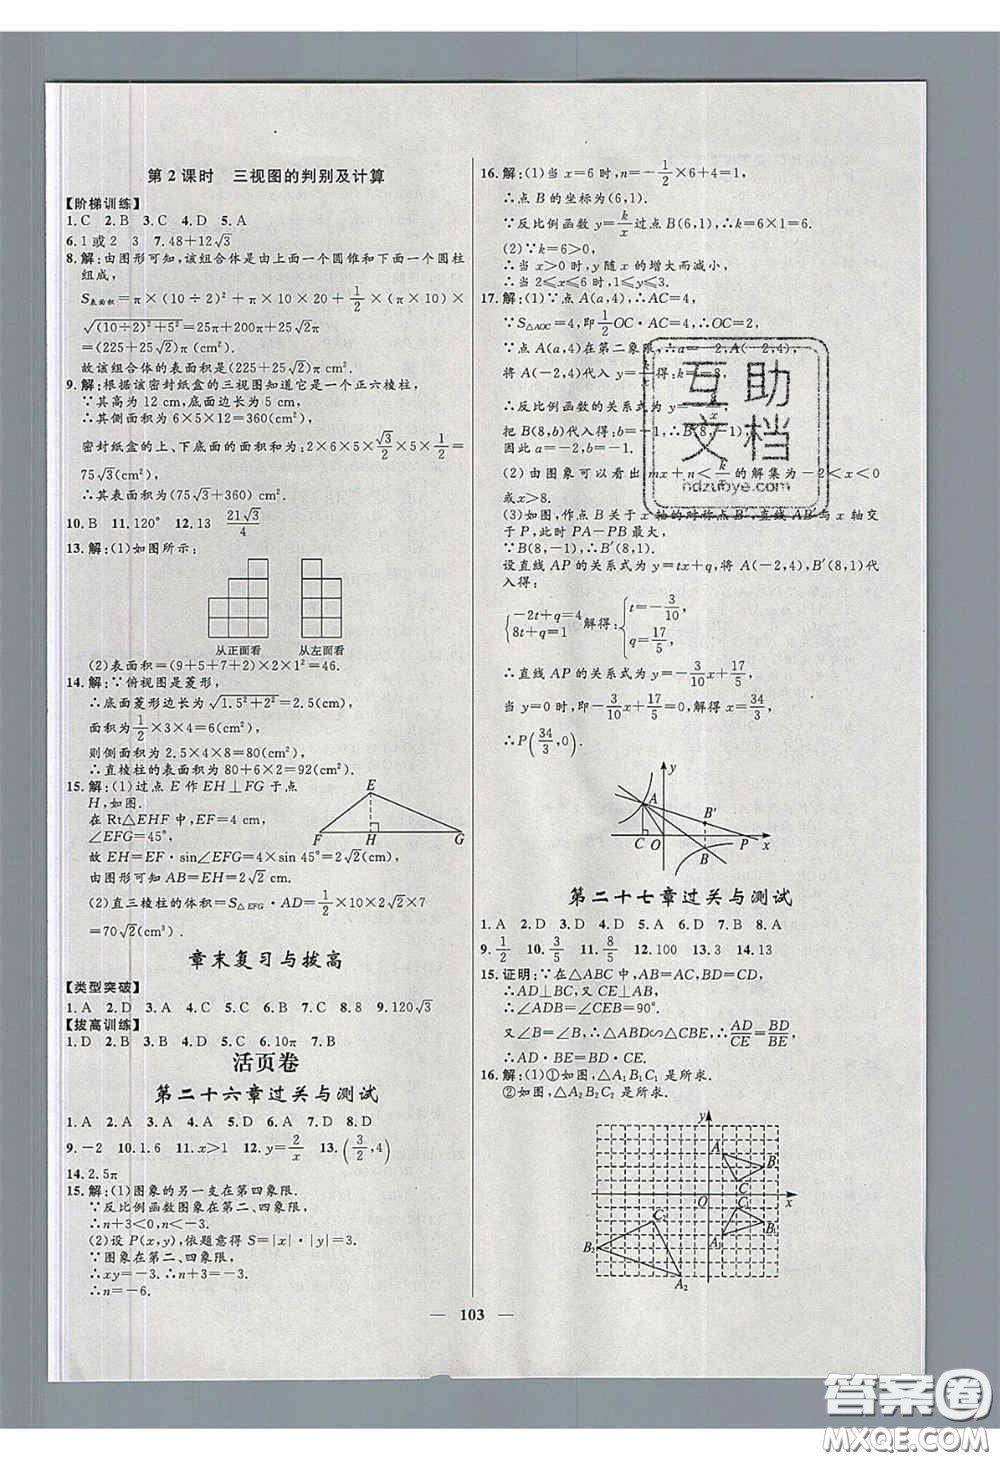 第2课时 三视图的判别及计算
【阶梯训练】
1.C 2.B 3.C 4.D 5.A
6.1或2 3 7.48+12√3
8.解:由图形可知,该组合体是由上面一个圆锥和下面一个圆柱
组成,
S表面积=π×(10÷2)²+π×10×20+1/2×(π×10)×
√((10÷2)²+5²)=25π+200π+25√2π
=(225+25√2)π(cm²).
故该组合体的表面积是(225+25√2)π(cm²).
9.解:根据该密封纸盒的三视图知道它是一个正六棱柱,
∵其高为12 cm,底面边长为5 cm,
∴其侧面积为6×5×12=360(cm²),
密封纸盒的上、下底面的面积和为:2×6×5×√3/2×5×1/2=
75√3(cm²),
∴其表面积为(75√3+360) cm².
10.B 11.120° 12.13 21√3/4
13.解:(1)如图所示:
从正面看 从左面看
(2)表面积=(9+5+7+2)×2×1²=46.
14.解:∵俯视图是菱形,
∴底面菱形边长为√(1.5²+2²)=2.5(cm),
面积为1/2×3×4=6(cm²),
则侧面积为2.5×4×8=80(cm²),
∴直棱柱的表面积为80+6×2=92(cm²).
15.解:(1)过点E作EH⊥FG于点
H,如图.
在Rt△EHF中,EF=4 cm,
∠EFG=45°,
E
F H G
故EH=EF·sin∠EFG=4×sin 45°=2√2(cm),
由图形可知AB=EH=2√2 cm.
(2)直三棱柱的体积=S△EFG·AD=1/2×10×2√2×7
=70√2(cm³).
章末复习与拔高
【类型突破】
1.A 2.D 3.A 4.C 5.C 6.B 7.C 8.8 9.120√3
【拔高训练】
1.D 2.B 3.B 4.D 5.C 6.10π 7.B
活页卷
第二十六章过关与测试
1.A 2.D 3.A 4.A 5.C 6.A 7.D 8.D
9.-2 10.1.6 11.x>1 12.y=2/x 13.(3/2,4)
14.2.5π
15.解:(1)图象的另一支在第四象限.
∵反比例函数图象在第二、四象限,
∴n+3<0,n<-3.
(2)设P(x,y),依题意得S=|x|·|y|=3.
∵图象在第二、四象限,
∴xy=-3.∴n+3=-3.
∴n=-6.
16.解:(1)当x=6时,n=-1/2×6+4=1,
∴点B的坐标为(6,1).
∵反比例函数y=k/x过点B(6,1),∴k=6×1=6.
(2)∵k=6>0,
∴当x>0时,y随x的增大而减小,
∴当2≤x≤6时,1≤y≤3.
17.解:(1)∵点A(a,4),∴AC=4,
∵S△AOC=4,即1/2OC·AC=4,∴OC=2,
∵点A(a,4)在第二象限,∴a=-2,A(-2,4),
将A(-2,4)代入y=k/x得:k=-8,
∴反比例函数的关系式为y=-8/x,
把B(8,b)代入得:b=-1,∴B(8,-1),
因此a=-2,b=-1.
(2)由图象可以看出mx+n<k/x的解集为-2<x<0
或x>8.
(3)如图,作点B关于x轴的对称点B′,直线AB′与x轴交
于P,此时PA-PB最大,
∵B(8,-1),∴B′(8,1).
设直线AP的关系式为y=tx+q,将A(-2,4),B′(8,1)代
入得:
{-2t+q=4 8t+q=1 解得:{t=-3/10 q=17/5,
∴直线AP的关系式为y=-3/10x+17/5,
当y=0时,即-3/10x+17/5=0,解得x=34/3,
∴P(34/3,0).
y A B′ C O B P x
第二十七章过关与测试
1.A 2.D 3.A 4.D 5.A 6.D 7.B 8.A
9.1/2 10.3/5 11.8/5 12.100 13.3 14.13
15.证明:∵在△ABC中,AB=AC,BD=CD,
∴AD⊥BC,又∵CE⊥AB,
∴∠ADB=∠CEB=90°.
又∠B=∠B,∴△ABD∽△CBE,∴AD/CE=BD/BE,
∴AD·BE=BD·CE.
16.解:(1)①如图,△A₁B₁C₁是所求.
②如图,△A₂B₂C₂是所求.
y A B C O x C₂ B₂ A₂ C₁ A₁ B₁
— 103 —
互助文档
ndzuoye.com
答案圈
MXQE.COM